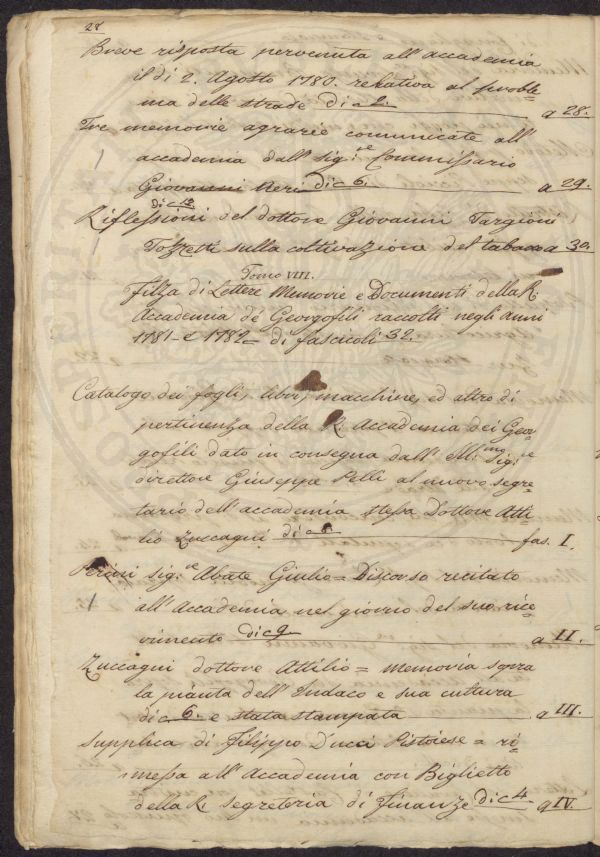 28
Breve risposta pervenuta all'accademia
il dì 2. Agosto 1780. relativa al proble=
ma delle strade di c 2. a 28.
Tre memorie agrarie comunicate all'
accademia dall'sig.re Commissario
Giovanni Neri di c 6. a 29.
di c 12
Riflessioni del dottore Giovanni Targioni
Tozzetti sulla coltivazione del tabaco a 30.
Tomo VIII.
Filza di Lettere Memorie e Documenti della R.
Accademia de' Georgofili raccolti negli anni
1781 = e 1782 = di fascicoli 32.
Catalogo dei fogli, libri, macchine, ed altro di
pertinenza della R. Accademia dei Geor=
gofili dato in consegna dall' Ill:mo Sig:re
direttore Giuseppe Pelli al nuovo segre=
tario dell'accademia stessa Dottore Atti=
lio Zuccagni di c 8. fas. I.
Perini sig.re Abate Giulio = Discorso recitato
all'Accademia nel giorno del suo rice=
vimento di c 9. a II.
Zuccagni dottore Attilio = memoria sopra
la pianta dell'Indaco e sua cultura
di c 6. e stata stampata a III.
Supplica di Filippo Ducci Pistoiese = ri=
messa all'Accademia con Biglietto
della R. segreteria di Finanze di c 4 a IV.